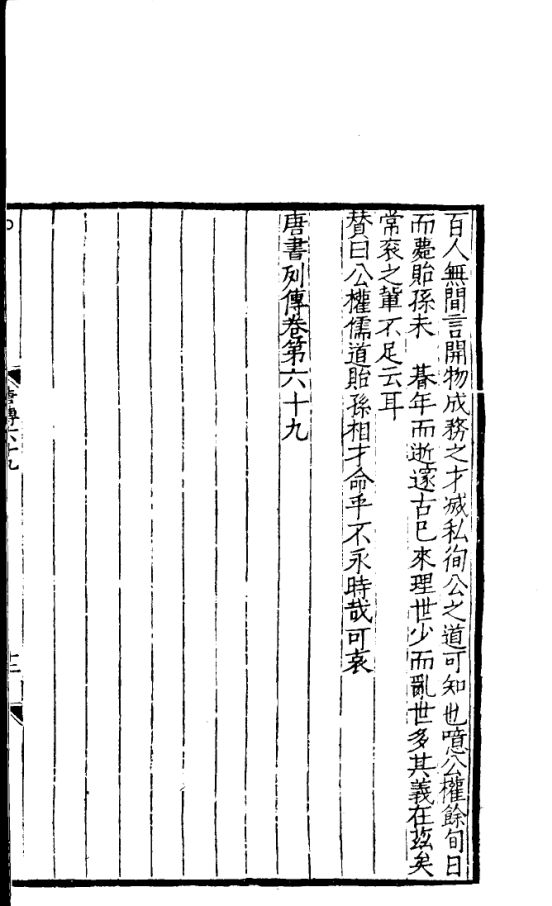 百人無間言開物成務之才滅私徇公之道可知也噫公權餘旬日
而薨貽孫未　朞年而逝邃古已來理世少而亂世多其義在茲矣
常衮之輩不足云耳
贊曰公權儒道貽孫相才命乎不永時哉可哀
唐書列傳卷第六十九
唐傳六十九
十三